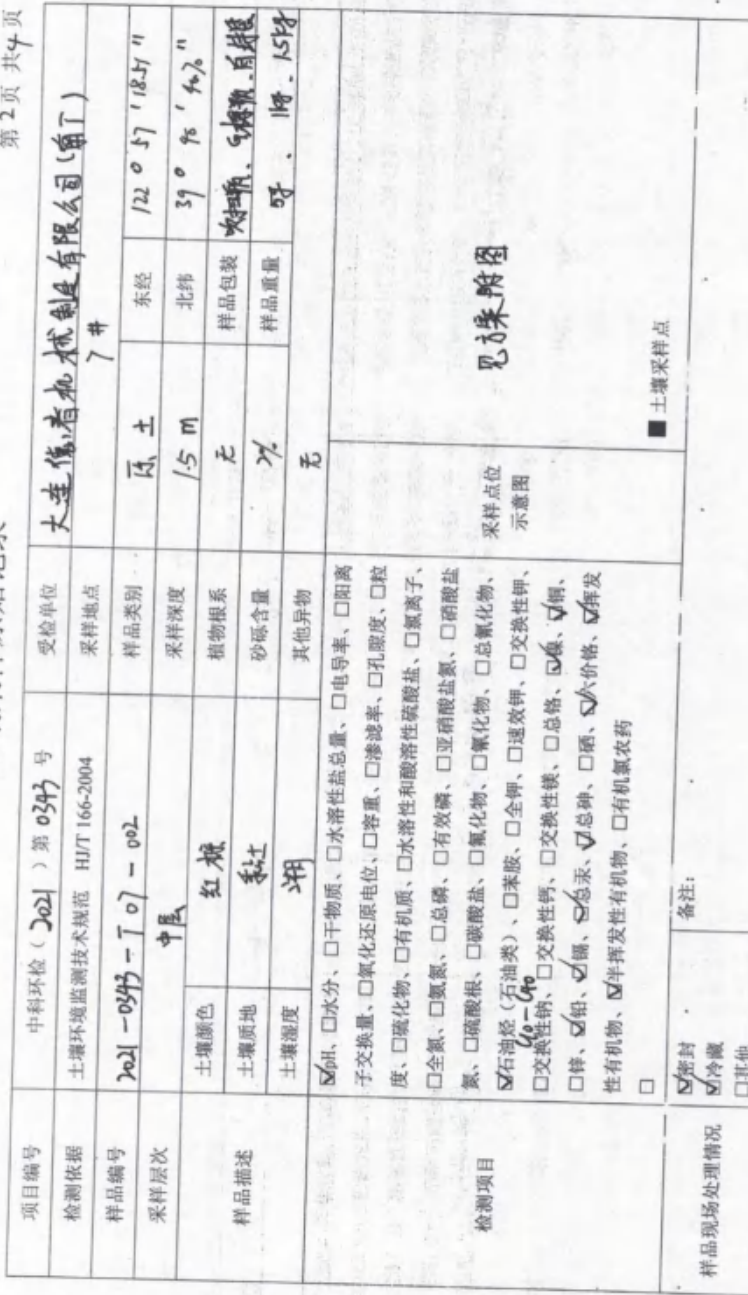 第2页 共4页
项目编号 中科环检（2021）第 0343 号 受检单位 大连 有机 械制造有限公司
检测依据 土壤环境监测技术规范 HJ/T 166-2004 采样地点 7#
样品编号 2021-0343-T07-002 样品类别 土 东经 122° 57'
采样层次 中层 采样深度 1.5 m 北纬 39°
样品描述 土壤颜色 红棕 植物根系 无 样品包装
土壤质地 砂砾含量 2% 样品重量 5g、1kg、1.5kg
土壤湿度 潮 其他异物 无
检测项目
☑pH、□水分、□干物质、□水溶性盐总量、□电导率、□阳离
子交换量、□氧化还原电位、□容重、□渗滤率、□孔隙度、□粒
度、□硫化物、□有机质、□水溶性和酸溶性硫酸盐、□氯离子、
□全氮、□氨氮、□总磷、□有效磷、□亚硝酸盐氮、□硝酸盐
氮、□硫酸根、□碳酸盐、□氟化物、□氰化物、□总氰化物、
☑石油烃（石油类）、□苯胺、□全钾、□速效钾、□交换性钾、
C10-C40
□交换性钠、□交换性钙、□交换性镁、□总铬、☑镍、☑铜、
□锌、☑铅、☑镉、☑总汞、☑总砷、□硒、☑六价铬、☑挥发
性有机物、☑半挥发性有机物、□有机氯农药
□
采样点位
示意图
见方案附图
■ 土壤采样点
样品现场处理情况
☑密封
☑冷藏
□其他
备注：